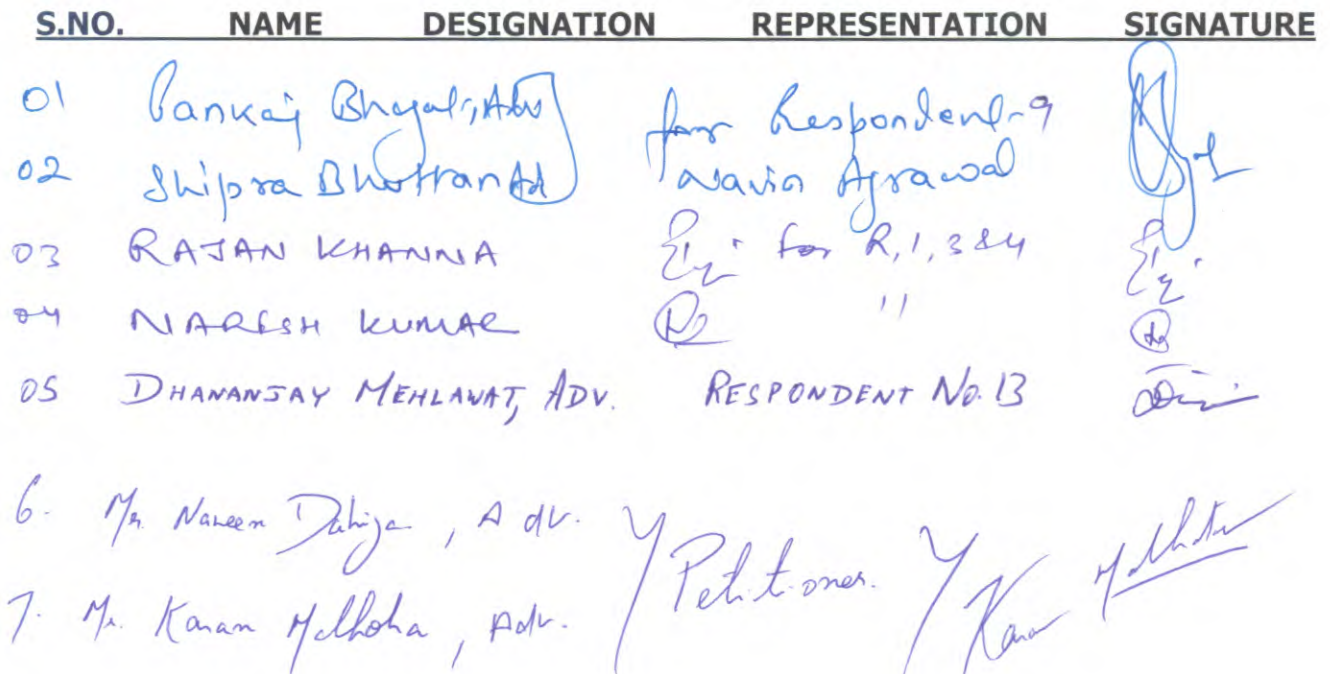 S.NO. NAME DESIGNATION REPRESENTATION SIGNATURE
01 Pankaj Bhagat, Adv for Respondent-9
02 Shipra Bhottran Ad Navin Agrawal
03 RAJAN KHANNA for R,1,3&4
04 NARESH KUMAR "
05 DHANANJAY MEHLAWAT, ADV. RESPONDENT No. 13
6. Mr. Naveen Dahiya, Adv.
Petitioner. Karan Malhotra
7. Mr. Karan Malhotra, Adv.